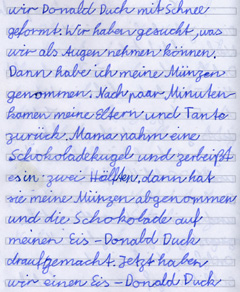 wir Donald Duch mit Schnee
geformt. Wir haben gesucht, was
wir als Augen nehmen können.
Dann habe ich meine Münzen
genommen. Nach paar Minuten
kamen meine Eltern und Tante
zurück. Mama nahm eine
Schokoladekugel und zerbeißt
es in zwei Hälften, dann hat
sie meine Münzen abgenommen
und die Schokolade auf
meinen Eis - Donald Duck
draufgemacht. Jetzt haben
wir einen Eis - Donald Duck